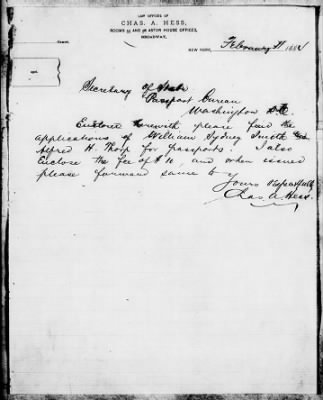 LAW OFFICES OF
CHAS. A. HESS,
ROOMS 55 and 56 ASTOR HOUSE OFFICES,
BROADWAY,
NEW YORK, February 188
Secretary of State
Passport Bureau
Washington D.C.
Enclosed herewith please find the
applications of William Sydney Smith and
Alfred H. Thorp for passports. I also
Enclose the fee of $10, and when issued
please forward same to
Yours Respectfully
Chas. A. Hess.